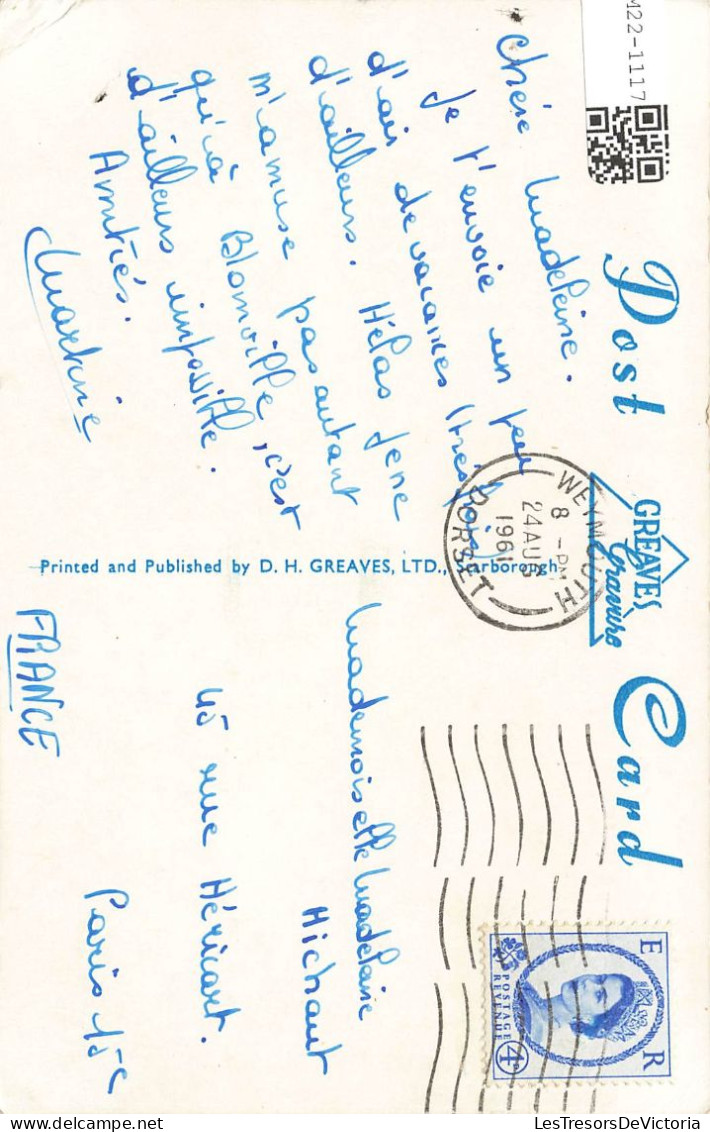 M22-1117
Post Card
GREAVES
Gravure
Chère Madeleine.
Je t'envoie un peu
d'air de vacances (très frais)
d'ailleurs. Hélas je ne
m'amuse pas autant
qu'à Blonville, c'est
d'ailleurs impossible.
Amitiés.
Martine
WEYMOUTH
8 - PM
24 AUG
1961
DORSET
Printed and Published by D. H. GREAVES, LTD., Scarborough
Mademoiselle Madeleine
Michaut
45 rue Héricart.
Paris 15e
FRANCE
E R
POSTAGE
REVENUE
4D
Delcampe.net
LesTresorsDeVictoria